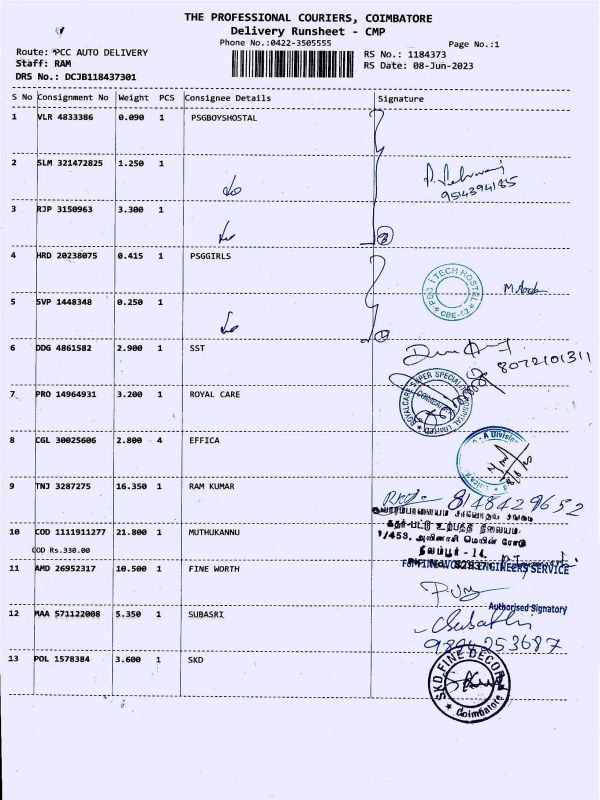 THE PROFESSIONAL COURIERS, COIMBATORE
Delivery Runsheet - CMP
Phone No.:0422-3505555
Page No.:1
Route: PCC AUTO DELIVERY
Staff: RAM
DRS No.: DCJB118437301
RS No.: 1184373
RS Date: 08-Jun-2023
S No Consignment No Weight PCS Consignee Details Signature
1 VLR 4833386 0.090 1 PSGBOYSHOSTAL
2 SLM 321472825 1.250 1
9514394185
3 RJP 3150963 3.300 1
4 HRD 20238075 0.415 1 PSGGIRLS
PSG I TECH HOSTEL
CBE-62
5 SVP 1448348 0.250 1
6 DDG 4861582 2.900 1 SST
8072101311
7 PRO 14964931 3.200 1 ROYAL CARE
ROYALCARE SUPER SPECIALITY HOSPITAL LIMITED
8 CGL 30025606 2.800 4 EFFICA
A Division
9 TNJ 3287275 16.350 1 RAM KUMAR
8148429652
10 COD 1111911277 21.800 1 MUTHUKANNU
COD Rs.330.00
கதர்-பட்டு உற்பத்தி நிலையம்
1/453, அவினாசி மெயின் ரோடு
நீலம்பூர் - 14.
11 AMD 26952317 10.500 1 FINE WORTH
ENGINEERS SERVICE
Authorised Signatory
12 MAA 571122008 5.350 1 SUBASRI
9894253687
13 POL 1578384 3.600 1 SKD
SKD FINE DECOR
Coimbatore